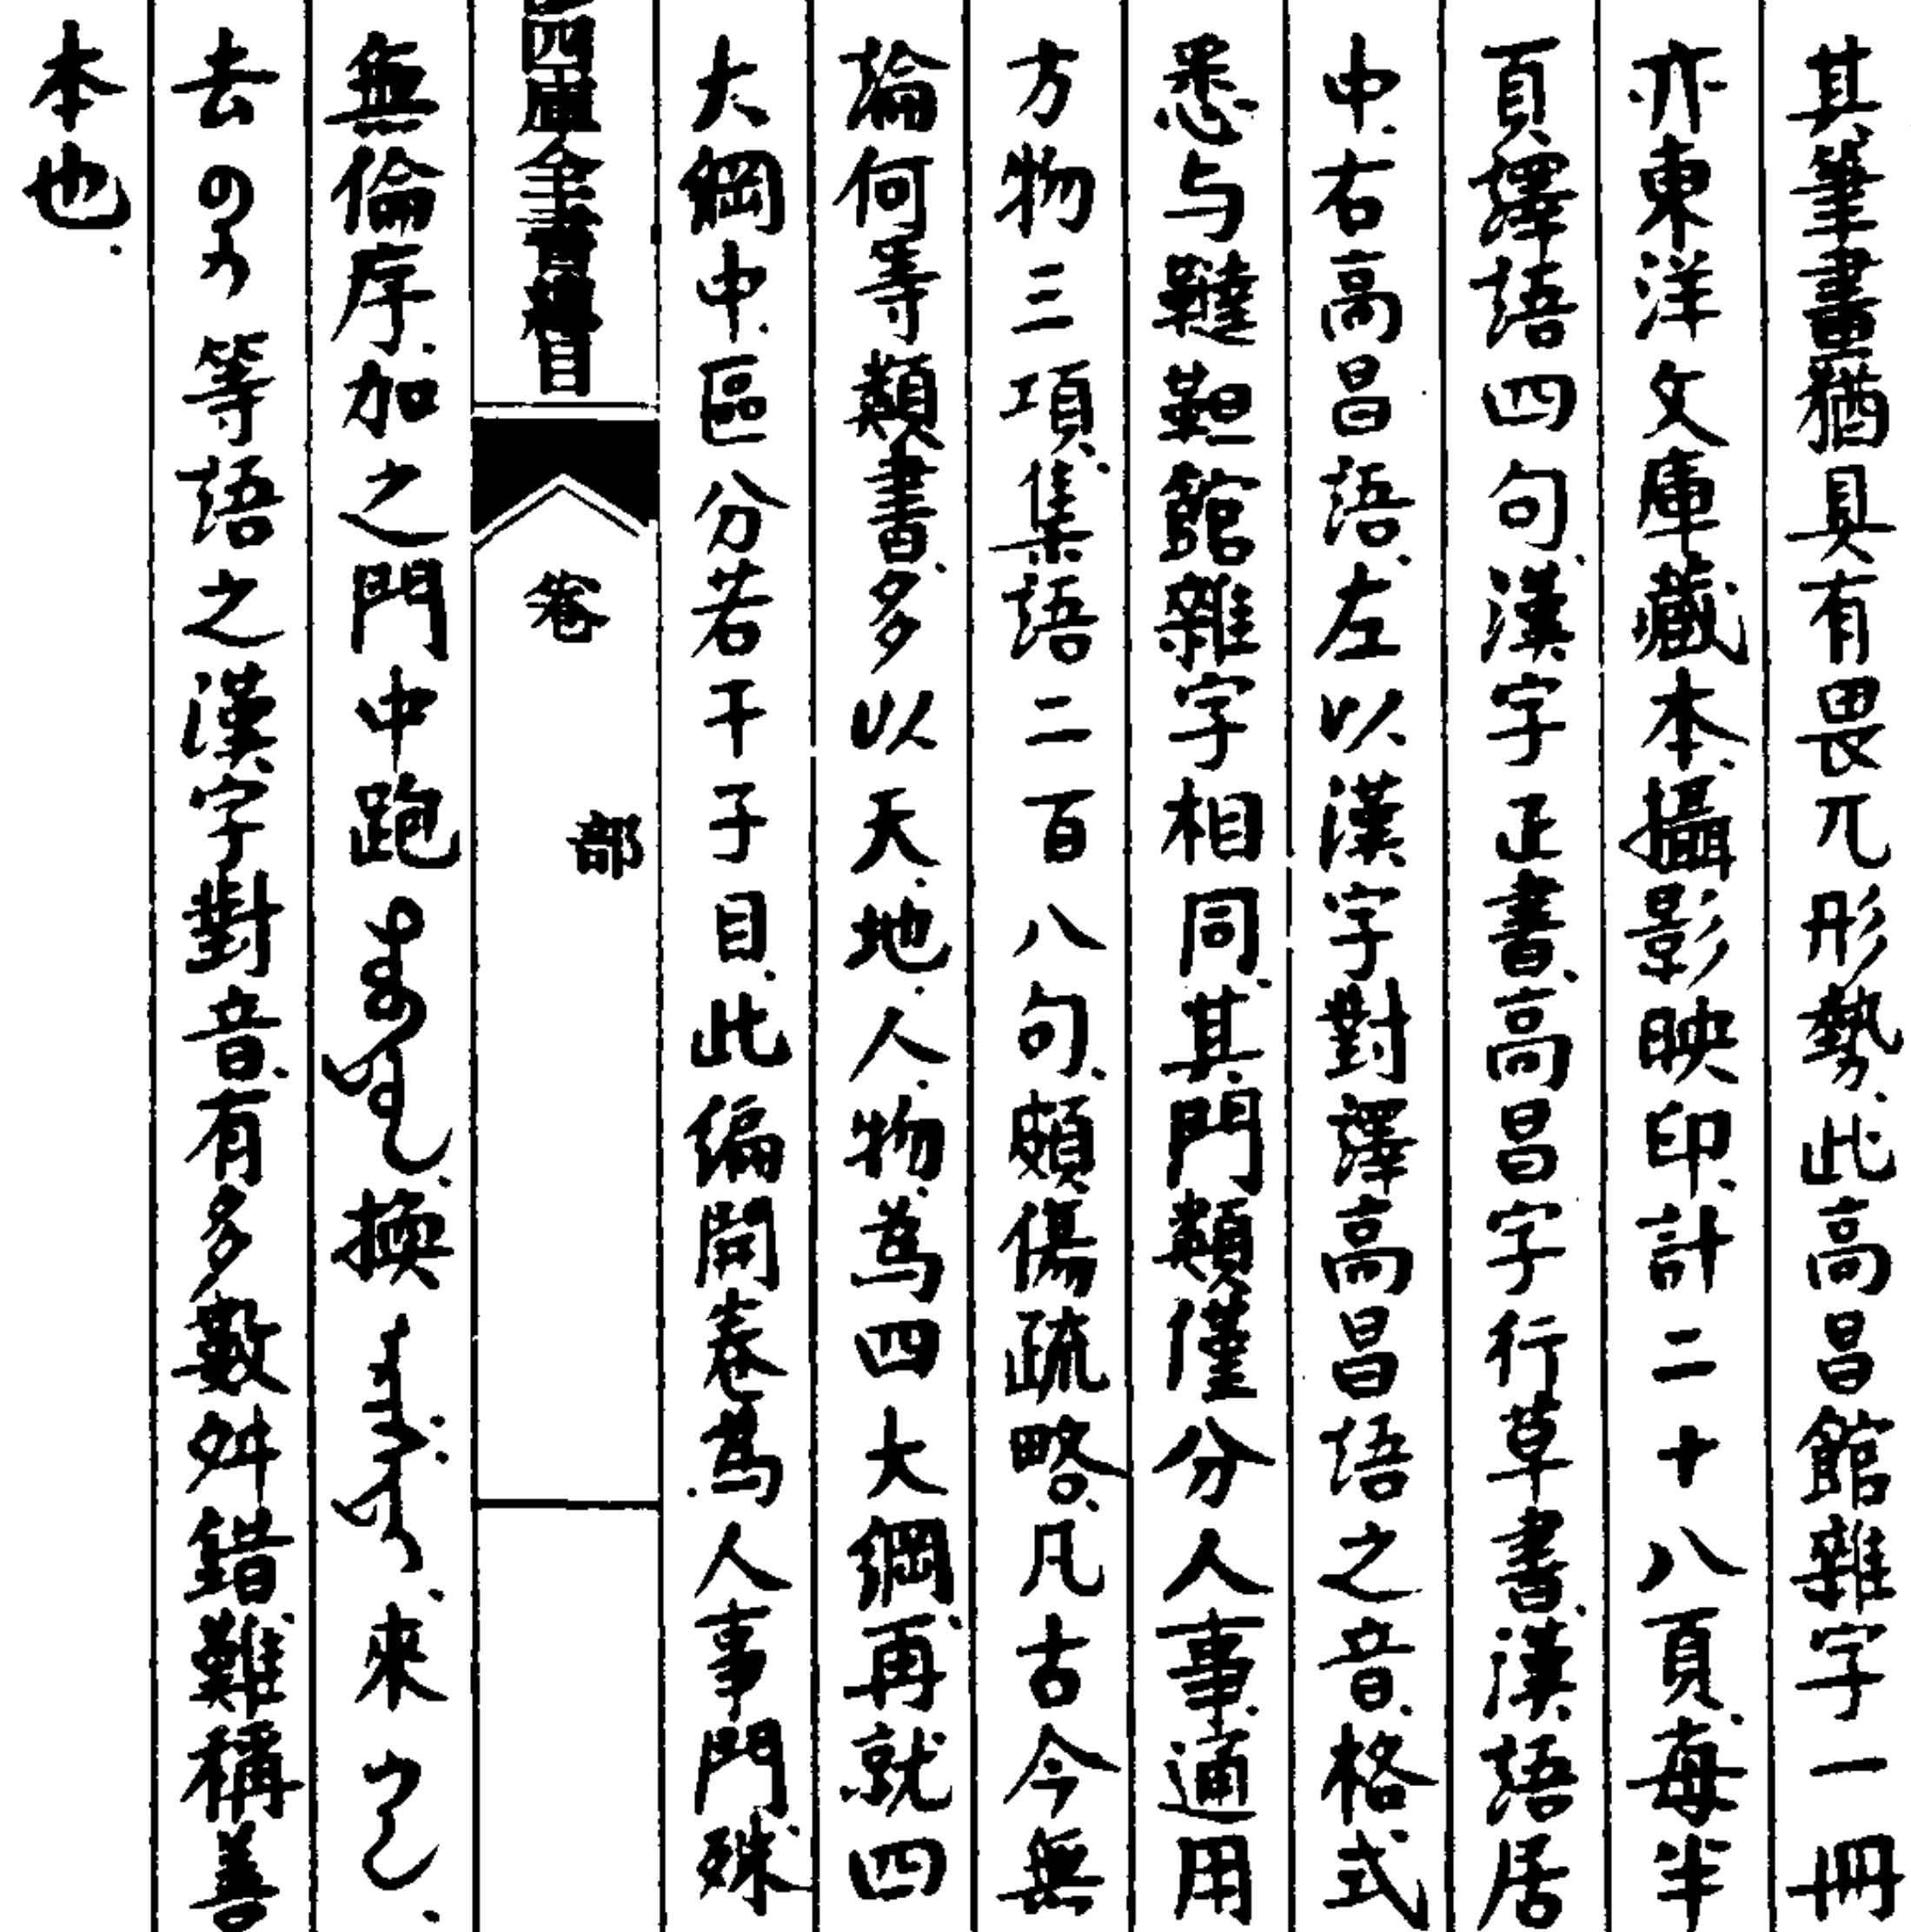 其筆畫猶具有畏兀形勢.此高昌館雜字一冊
亦東洋文庫藏本.攝影映印.計二十八頁.每半
頁譯語四句.漢字正書.高昌字行草書.漢語居
中.右高昌語.左以漢字對譯高昌語之音.格式
悉与韃靼館雜字相同.其門類僅分人事.通用
方物三項.集語二百八句.頗傷疏略.凡古今無
論何等類書.多以天.地.人.物.為四大綱.再就四
大綱中.區分若干子目.此編開卷.為人事門.殊
四庫全書總目
卷
部
無倫序.加之門中跑.換.來.
去等語之漢字對音.有多數舛錯.難稱善
本也.